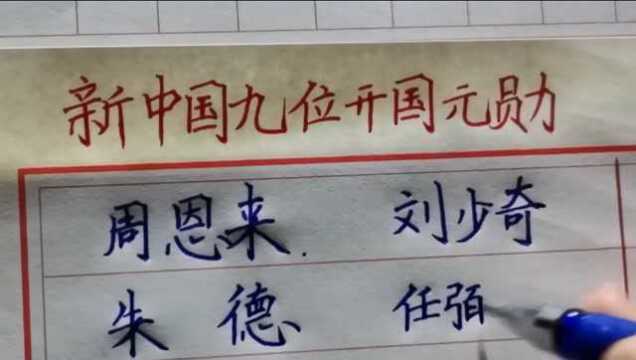 新中国九位开国元勋
周恩来 刘少奇
朱德 任